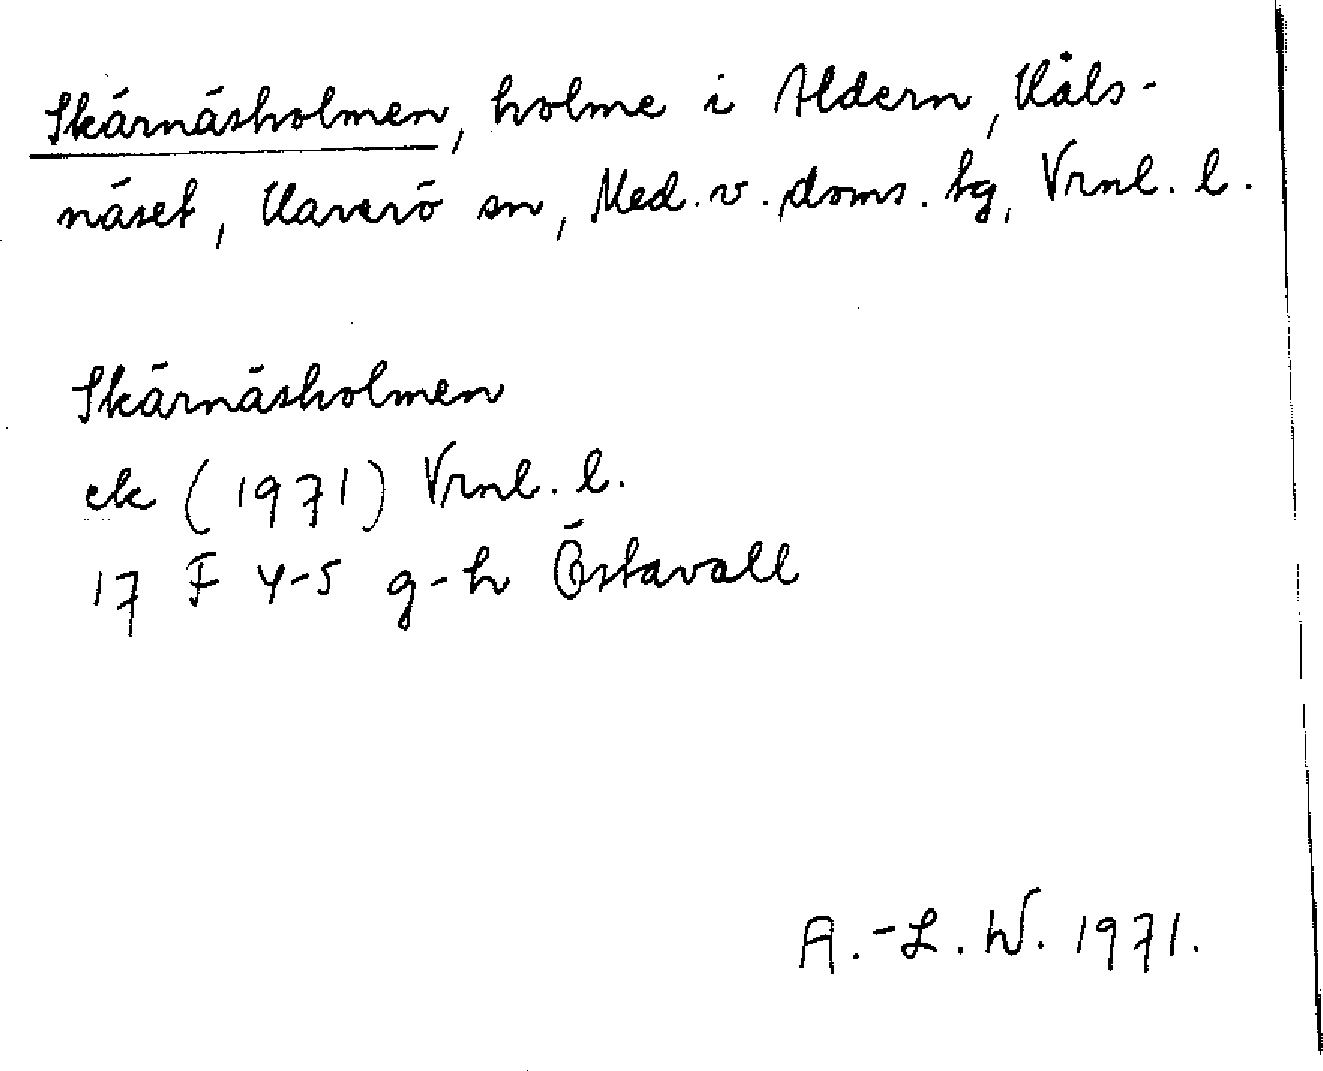 Skärnäsholmen, holme i Aldern, Kåls-
näset, Haverö sn, Med. v. doms. tg, Vrnl. l.
Skärnäsholmen
ek (1971) Vrnl. l.
17 F 4-5 g-h Östavall
A.-L. W. 1971.